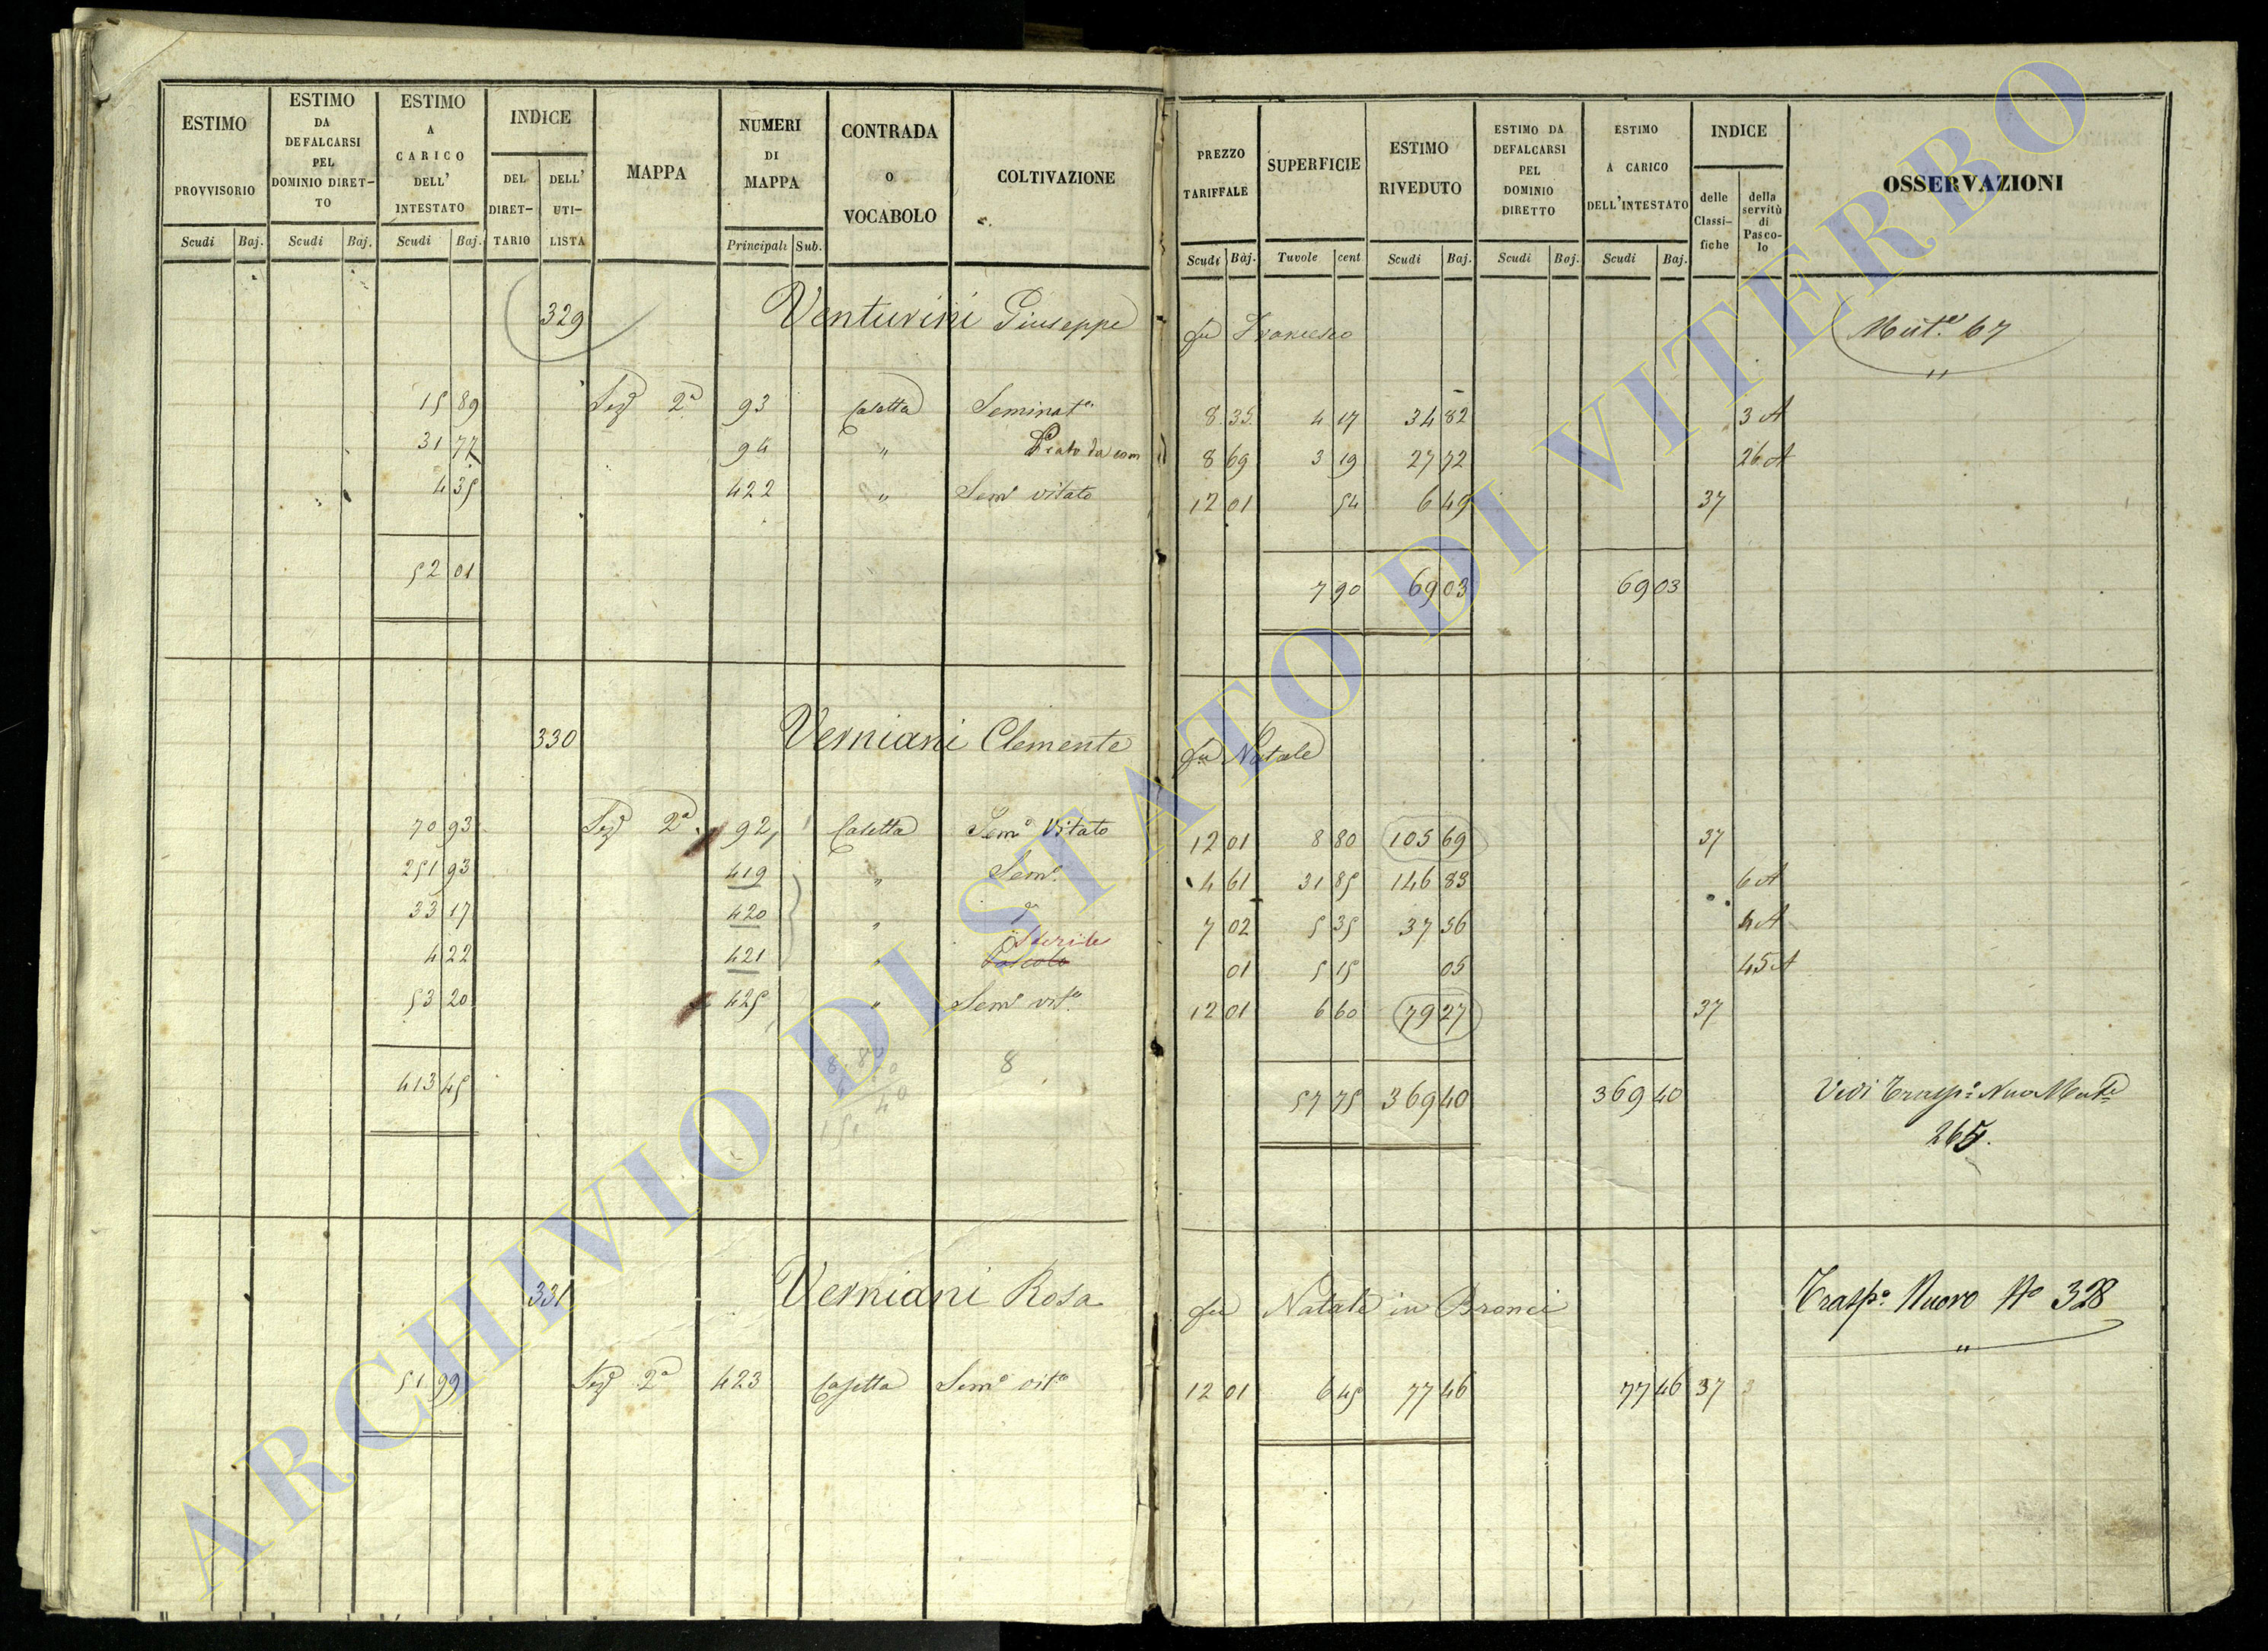 ESTIMO PROVVISORIO Scudi Baj. | ESTIMO DA DEFALCARSI PEL DOMINIO DIRET-TO Scudi Baj. | ESTIMO A CARICO DELL' INTESTATO Scudi Baj. | INDICE DEL DIRET-TARIO DELL' UTI-LISTA | MAPPA | NUMERI DI MAPPA Principali Sub. | CONTRADA O VOCABOLO | COLTIVAZIONE | PREZZO TARIFFALE Scudi Baj. | SUPERFICIE Tavole cent | ESTIMO RIVEDUTO Scudi Baj. | ESTIMO DA DEFALCARSI PEL DOMINIO DIRETTO Scudi Baj. | ESTIMO A CARICO DELL'INTESTATO Scudi Baj. | INDICE delle Classi-fiche della servitù di Pasco-lo | OSSERVAZIONI
329 Venturini Giuseppe fu Francesco Mut.e 67
"
15 89 Sez.e 2a 93 Casetta Seminat.o 8 35 4 17 34 82 3 A
31 77 94 " Prato da com 8 69 3 19 27 72 26 A
4 35 422 " Sem.o vitato 12 01 54 6 49 37
52 01 7 90 69 03 69 03
330 Verniani Clemente fu Natale
70 93 Sez.e 2a 92 Casetta Sem.o Vitato 12 01 8 80 105 69 37
251 93 419 " Sem.o 4 61 31 85 146 83 6 A
33 17 420 " d.o 7 02 5 35 37 56 4 A
Sterile
4 22 421 " Pascolo 01 5 15 05 45 A
53 20 425 " Sem.o vit.o 12 01 6 60 79 27 37
8
413 45 57 75 369 40 369 40 Vedi Trasp.o Nuo Mut.e
265.
331 Verniani Rosa fu Natale in Bronci Trasp.o Nuovo No 328
"
51 99 Sez.e 2a 423 Casetta Sem.o vit.o 12 01 6 45 77 46 77 46 37
ARCHIVIO DI STATO DI VITERBO